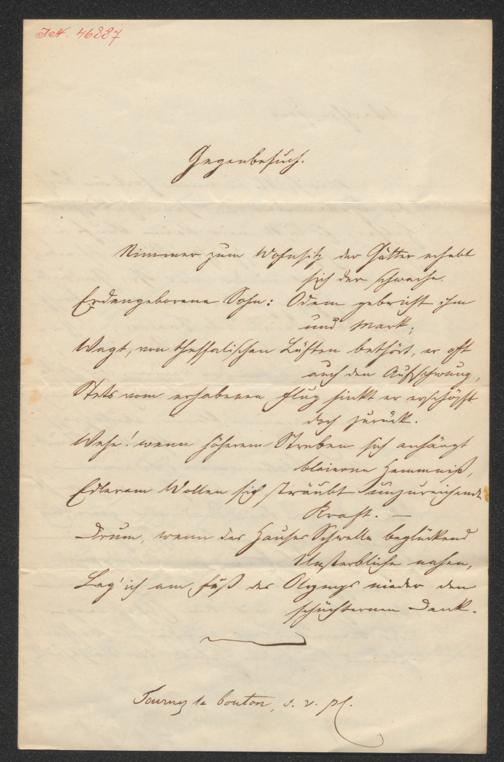 J.N. 46887
Gegenbesuch.
Nimmer zum Wohnsitz der Götter erhebt
sich der schwache
Erdengeborene Sohn: Odem gebricht ihm
und Mark;
Wagt, von thessalischen Lüften bethört, er oft
auch den Aufschwung,
Stets vom erhabenen Flug sinkt er erschöpft
doch zurück.
Wehe! wenn höherem Streben sich anhängt
bleierne Hemmniß,
Edlerem Wollen sich sträubt unzureichende
Kraft. —
Drum, wenn des Hauses Schwelle beglückend
Unsterbliche nahen,
Leg' ich am Fuß des Olymps nieder den
schüchternen Dank.
Tournez le bouton, s. v. pl.